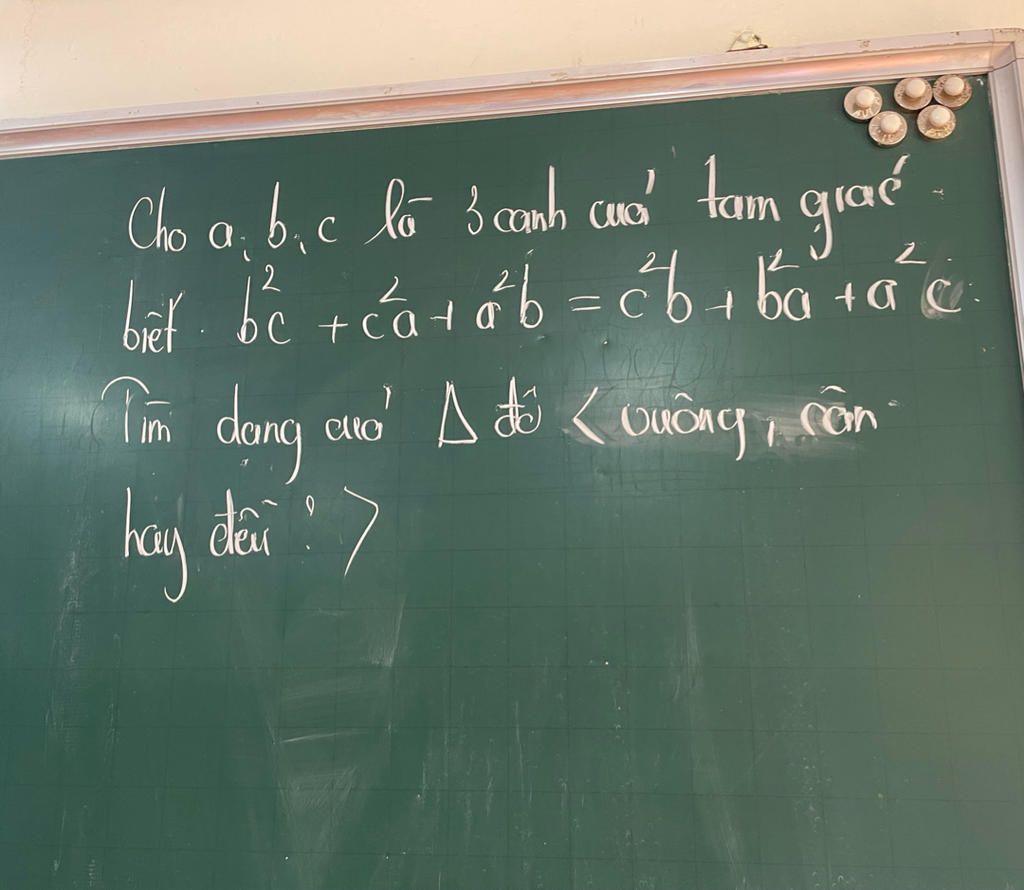 Cho a, b, c là 3 cạnh của tam giác
biết. b²c + c²a + a²b = c²b + b²a + a²c.
Tìm dạng của Δ đó < vuông, cân
hay đều? >